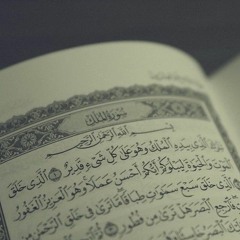 سُورَةُ الْمُلْكِ
بِسْمِ اللَّهِ الرَّحْمَٰنِ الرَّحِيمِ
الَّذِي بِيَدِهِ الْمُلْكُ وَهُوَ عَلَىٰ كُلِّ شَيْءٍ قَدِيرٌ ۝ الَّذِي خَلَقَ
الْمَوْتَ وَالْحَيَوٰةَ لِيَبْلُوَكُمْ أَيُّكُمْ أَحْسَنُ عَمَلًا وَهُوَ الْعَزِيزُ الْغَفُورُ
الَّذِي خَلَقَ سَبْعَ سَمَٰوَٰتٍ طِبَاقًا مَّا تَرَىٰ فِي خَلْقِ الرَّحْمَٰنِ مِن
فَارْجِعِ الْبَصَرَ هَلْ تَرَىٰ مِن فُطُورٍ